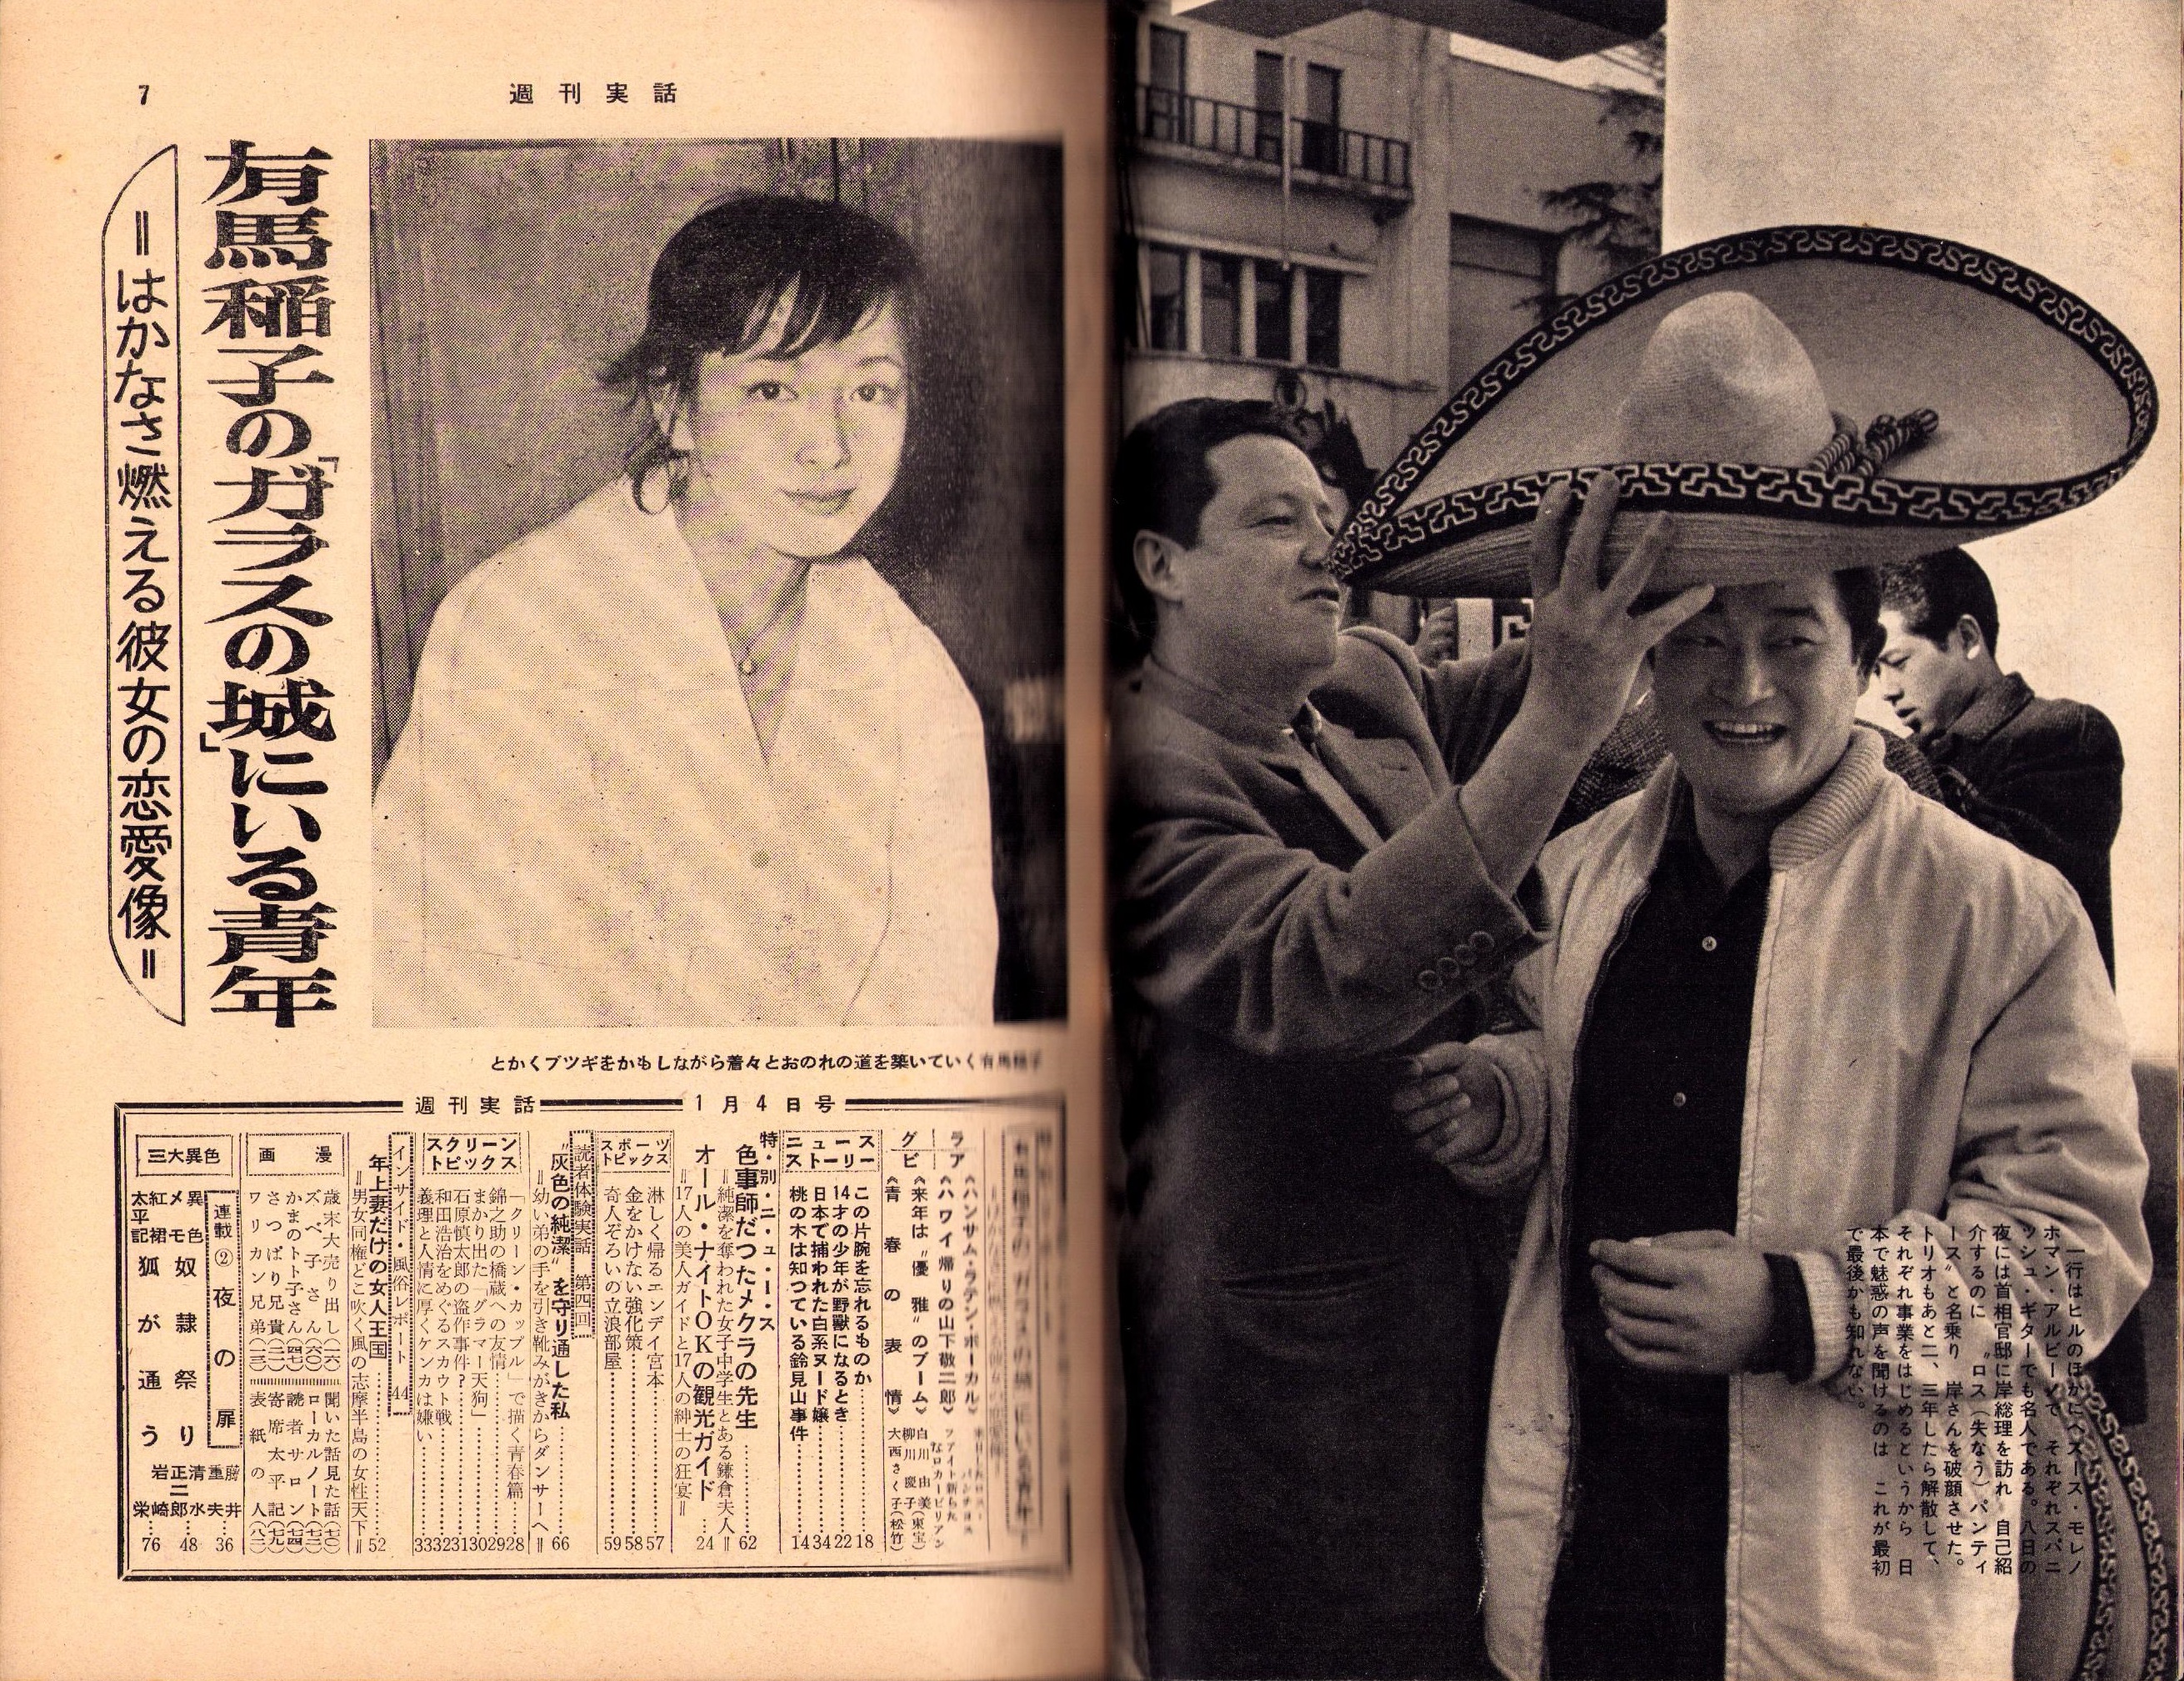 一行はヒルのほかにヘスース・モレノ
ホマン・アルビーノで それぞれスパニ
ッシュ・ギターでも名人である。八日の
夜には首相官邸に岸総理を訪れ 自己紹
介するのに 〝ロス(失なう)パンティ
ース〟と名乗り 岸さんを破顔させた。
トリオもあと二、三年したら解散して、
それぞれ事業をはじめるというから 日
本で魅惑の声を聞けるのは これが最初
で最後かも知れない。
7
週刊実話
有馬稲子の「ガラスの城」にいる青年
=はかなさ燃える彼女の恋愛像=
とかくブツギをかもしながら着々とおのれの道を築いていく有馬稲子
週刊実話 1月4日号
グラビア
《ハンサム・ラテン・ボーカル》
《ハワイ帰りの山下敬二郎》
《来年は〝優雅〟のブーム》 白川由美(東宝)
柳川慶子
《青春の表情》 大西さく子(松竹)
ニュースストーリー
この片腕を忘れるものか……18
14才の少年が野獣になるとき……22
日本で捕われた白系ヌード嬢……34
桃の木は知つている鈴見山事件……14
特・別・ニ・ュ・ー・ス
色事師だつたメクラの先生……62
=純潔を奪われた女子中学生とある鎌倉夫人=
オール・ナイトOKの観光ガイド……24
=17人の美人ガイドと17人の紳士の狂宴=
スポーツトピックス
淋しく帰るエンデイ宮本……57
金をかけない強化策……58
奇人ぞろいの立浪部屋……59
読者体験実話 第四回
〝灰色の純潔〟を守り通した私……66
=幼い弟の手を引き靴みがきからダンサーへ=
スクリーントピックス
「クリーン・カップル」で描く青春篇……28
錦之助の橋蔵への友情……29
まかり出た「グラマー天狗」……30
石原慎太郎の盗作事件?……31
和田浩治をめぐるスカウト戦……32
義理と人情に厚くケンカは嫌い……33
インサイド・風俗レポート 44
年上妻だけの女人王国……52
=男女同権どこ吹く風の志摩半島の女性天下=
漫画
歳末大売り出し(一六)
ズベ子さん(六〇)
かまのトト子さん(四七)
さつぱり兄貴(二一)
ワリカン兄弟(一三)
聞いた話見た話(七〇)
ローカルノート(七二)
読者サロン(七四)
寄席太平記(七九)
表紙の人(八二)
三大異色
連載②夜の扉 勝重清正二岩
井夫水郎崎栄
異色
メモ 奴隷祭り
紅裙
太平記 狐が通う
36
48
76